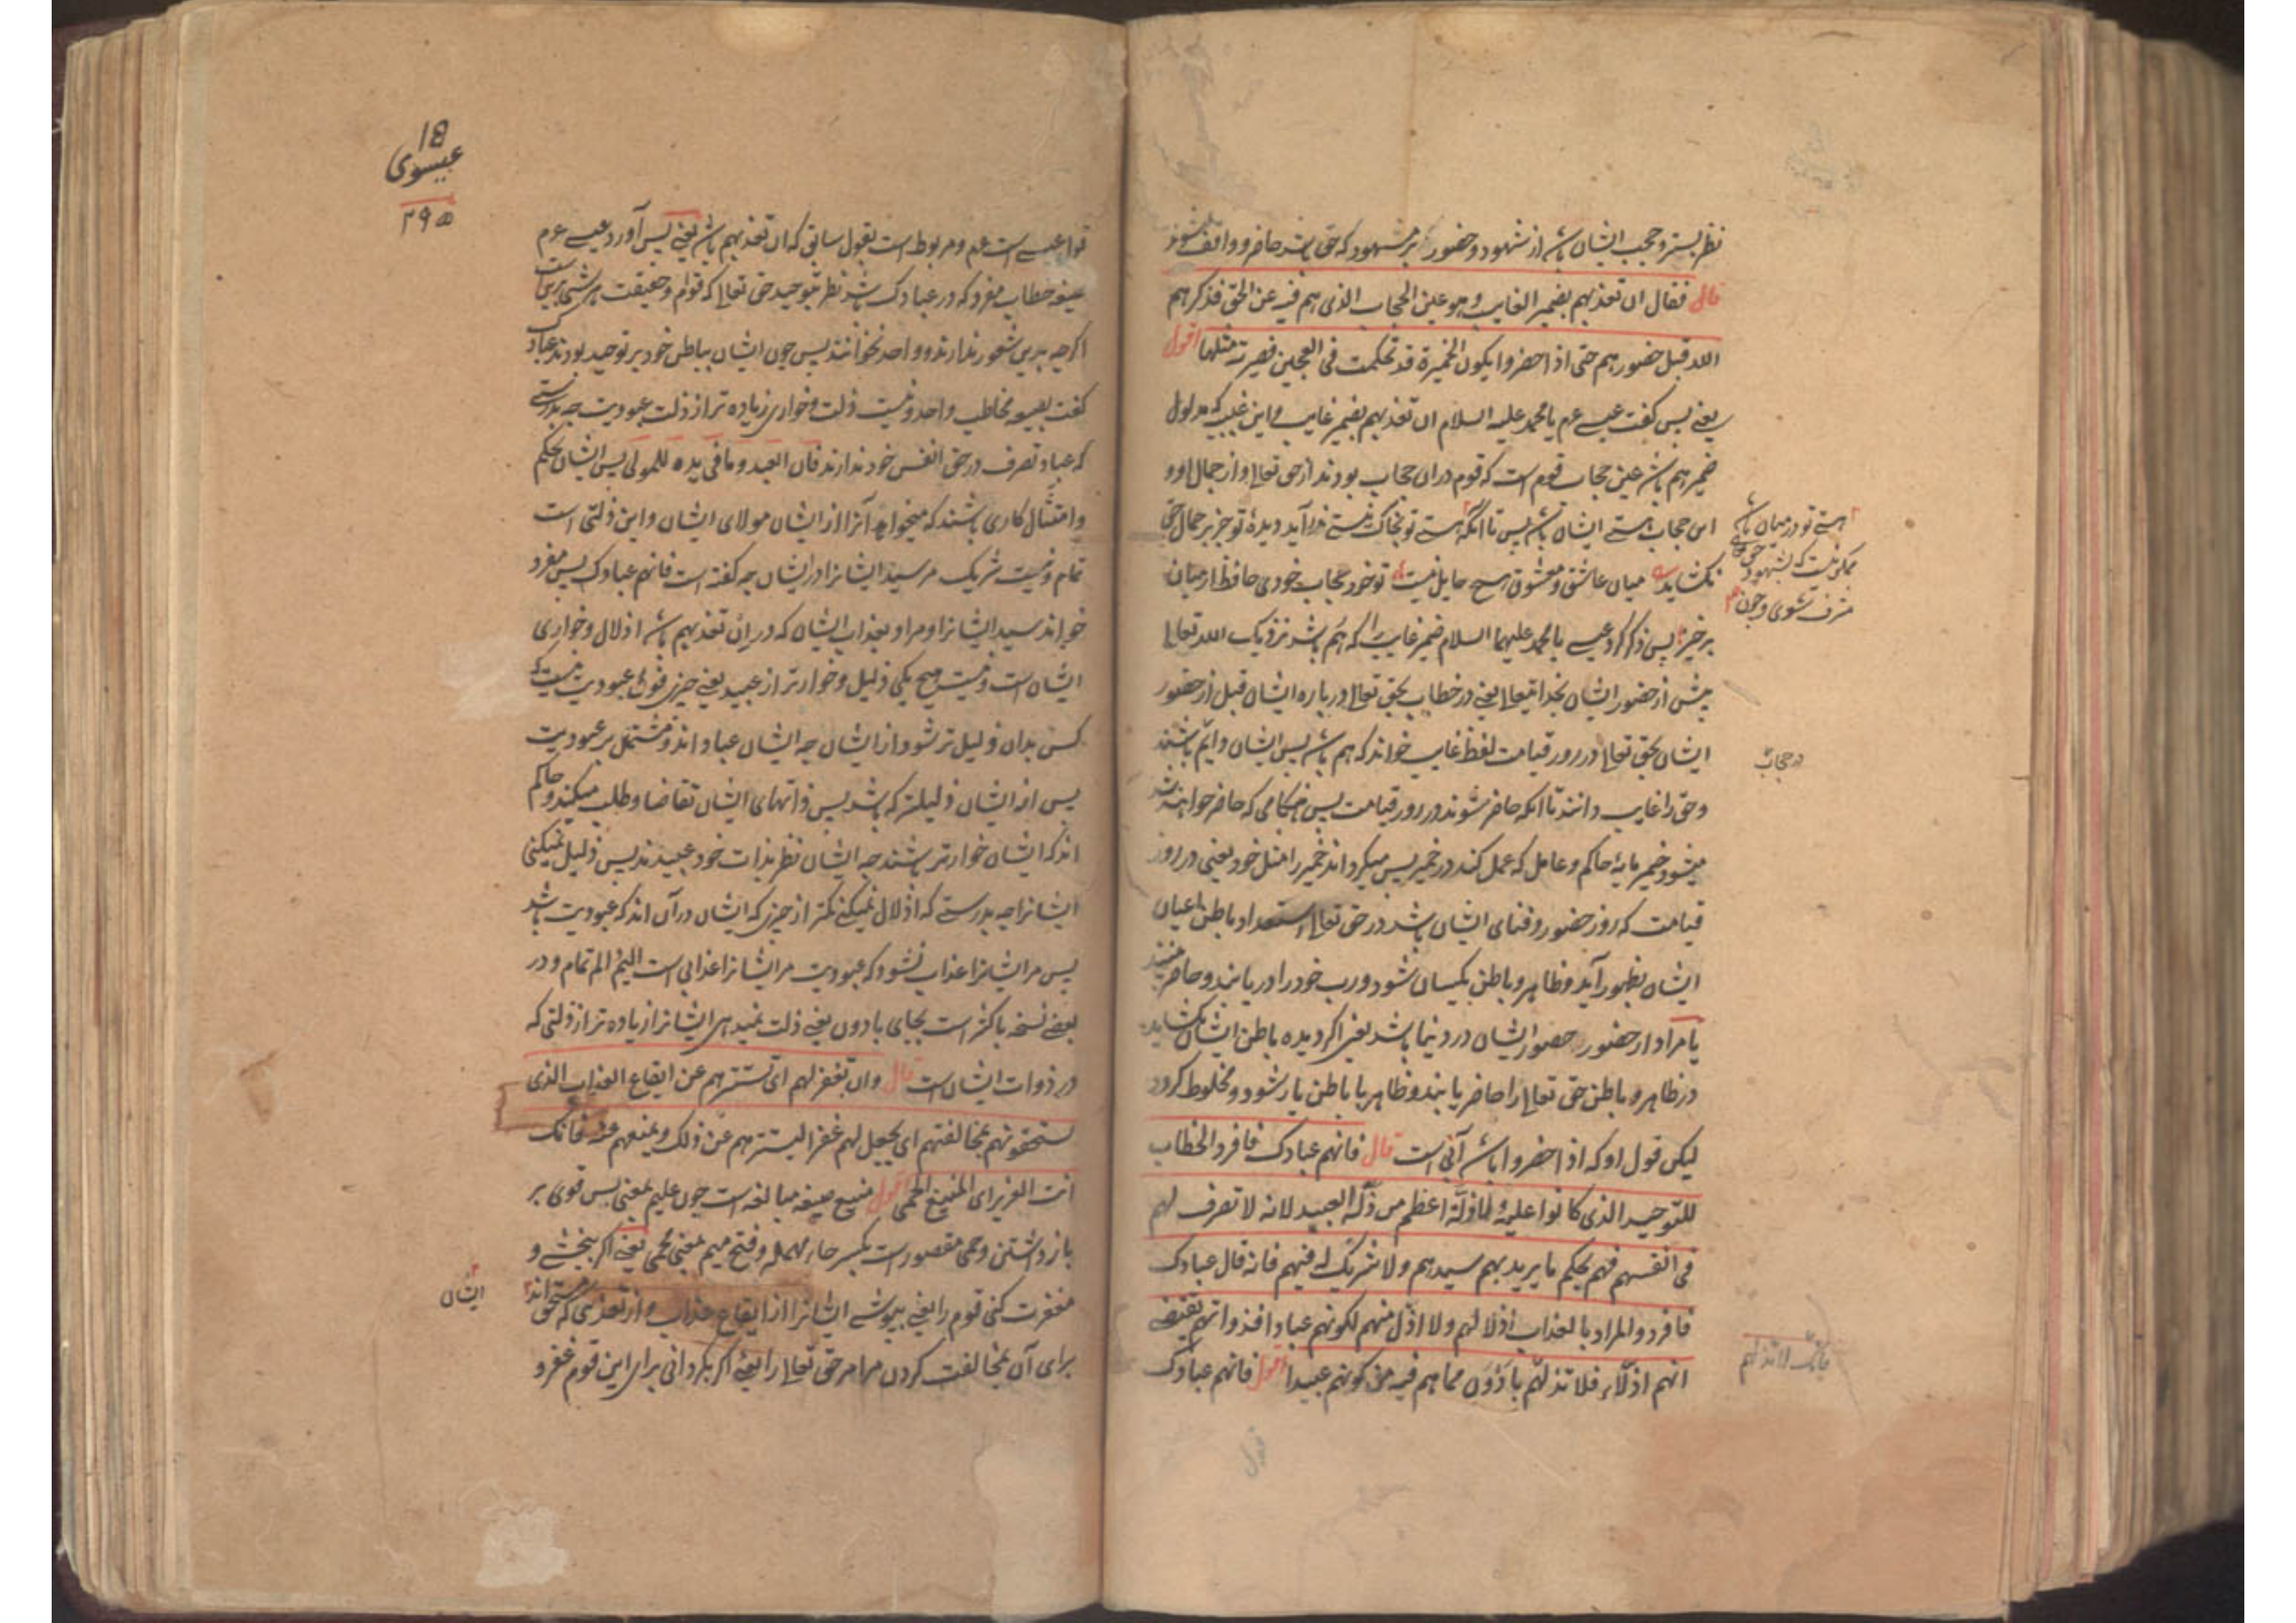 نظر بستر و حجب ایشان باشد از شهود و حضور بر مشهود که حق باشد حاضر و واقف نشوند
قال فقال ان تعذبهم بضمیر الغایب و هو عین الحجاب الذی هم فیه عن الحق فذکرهم
الله قبل حضورهم حتی اذا حضروا یکون الخمیرة قد تحکمت فی العجین فصیرته مثلها اقول
یعنی پس گفت عیسی عم یا محمد علیه السلام ان تعذبهم بضمیر غایب و این غیب که مدلول
ضمیر هم باشد عین حجاب قوم است که قوم دران حجاب بودند از حق تعالی و از جمال او و
این حجاب هستی ایشان باشد پس تا آنکه هستی تو بخاک نیستی در آید دیدهٔ تو جز بر جمال حق
نکشاید میان عاشق و معشوق هیچ حایل نیست تو خود حجاب خودی حافظ از میان
برخیز پس ذکر کرد عیسی یا محمد علیهما السلام ضمیر غایب را که هم باشد نزدیک الله تعالی
پیش از حضور ایشان بخدایتعالی یعنی در خطاب بحق تعالی درباره ایشان قبل از حضور
ایشان بحق تعالی در روز قیامت لفظ غایب خواند که هم باشد پس ایشان دایم باشند
و حق را غایب دانند تا آنکه حاضر شوند در روز قیامت پس هنگامی که حاضر خواهند شد
میشود خمیر مایه حاکم و عامل که عمل کند در خمیر پس میگرداند خمیر را مثل خود یعنی در روز
قیامت که روز حضور و فنای ایشان باشد در حق تعالی استعداد باطن اعیان
ایشان بظهور آید و ظاهر و باطن یکسان شود و رب خود را دریابند و حاضر
یا مراد از حضور حضور ایشان در دنیا باشد یعنی اگر دیده باطن ایشان بکشاید
در ظاهر و باطن حق تعالی را حاضر یابند و ظاهر با باطن یار شود و مخلوط گردد
لیکن قول او که اذا حضروا باشد آبی است قال فانهم عبادک فافرد الخطاب
للتوحید الذی کانوا علیه و لا ذلة اعظم من ذلة العبید لانه لا تصرف لهم
فی انفسهم فهم بحکم ما یرید بهم سیدهم و لا شریک له فیهم فانه قال عبادک
فافرد و المراد بالعذاب اذلالهم و لا اذل منهم لکونهم عبادا فذواتهم یقتضی
انهم اذلاء فلا تذلهم بادون مما هم فیه من کونهم عبیدا اقول فانهم عبادک
هستی تو در میان باشد
ممکن نیست که بشهود حق تعالی
مشرف شوی و چون
در حجاب
فانک لا تذلهم
قول
18
عیسوی
۲۹۵
قول عیسی است عم و مربوط است بقول سابق که ان تعذبهم باشد یعنی پس آورد عیسی عم
صیغه خطاب مفرد که در عبادک باشد نظر بتوحید حق تعالی که قوم در حقیقت
اگرچه بدین شعور ندارند و واحد نخوانند پس چون ایشان بباطن خود بر توحید بودند عبادک
گفت بصیغه مخاطب واحد و نیست ذلت و خواری زیاده تر از ذلت عبودیت چه بدرستی
که عباد تصرف در حق انفس خود ندارند فان العبد و ما فی یده للمولی پس ایشان بحکم
و امتثال کاری باشند که میخواهد آنرا از ایشان مولای ایشان و این ذلتی است
تمام و نیست شریک مر سید ایشانرا در ایشان چه گفته است فانهم عبادک پس مفرد
خواند سید ایشانرا و مراد بعذاب ایشان که در ان تعذبهم باشد اذلال و خواری
ایشان است و نیست هیچ یکی ذلیل و خوارتر از عبید یعنی چیزی فوق عبودیت نیست که
کسی بدان ذلیل تر شود از ایشان چه ایشان عباد اند و مشتمل بر عبودیت
پس از ایشان ذلیلتر که باشد پس ذاتهای ایشان تقاضا و طلب میکند و حاکم
اند که ایشان خوارتر باشند چه ایشان نظر بذات خود عبیدند پس ذلیل نمیکنی
ایشانرا چه بدرستی که اذلال نمیکنی کمتر از چیزی که ایشان در آن اند که عبودیت باشد
پس مر ایشانرا عذاب نشود که عبودیت مر ایشانرا عذابی است الیم الم تمام و در
بعضی نسخه باکثر است بجای بادون یعنی ذلت نمیدهی ایشانرا زیاده تر از ذلتی که
در ذوات ایشان است قال و ان تغفر لهم ای تسترهم عن ایقاع العذاب الذی
یستحقونهم بمخالفتهم ای تجعل لهم غفرا یسترهم عن ذلک و یمنعهم عنه فانک
انت العزیز ای المنیع الحمی اقول منیع صیغه مبالغه است چون علیم بمعنی بس قوی بر
بازداشتن و حمی مقصور است بکسر حاء مهمله و فتح میم بمعنی محمی یعنی اگر ببخشی و
مغفرت کنی قوم را یعنی بپوشی ایشانرا از ایقاع عذاب و از تعذبی که مستحق اند
برای آن بمخالفت کردن مر امر حق تعالی را یعنی اگر بگردانی برای این قوم غفر و
ایشان